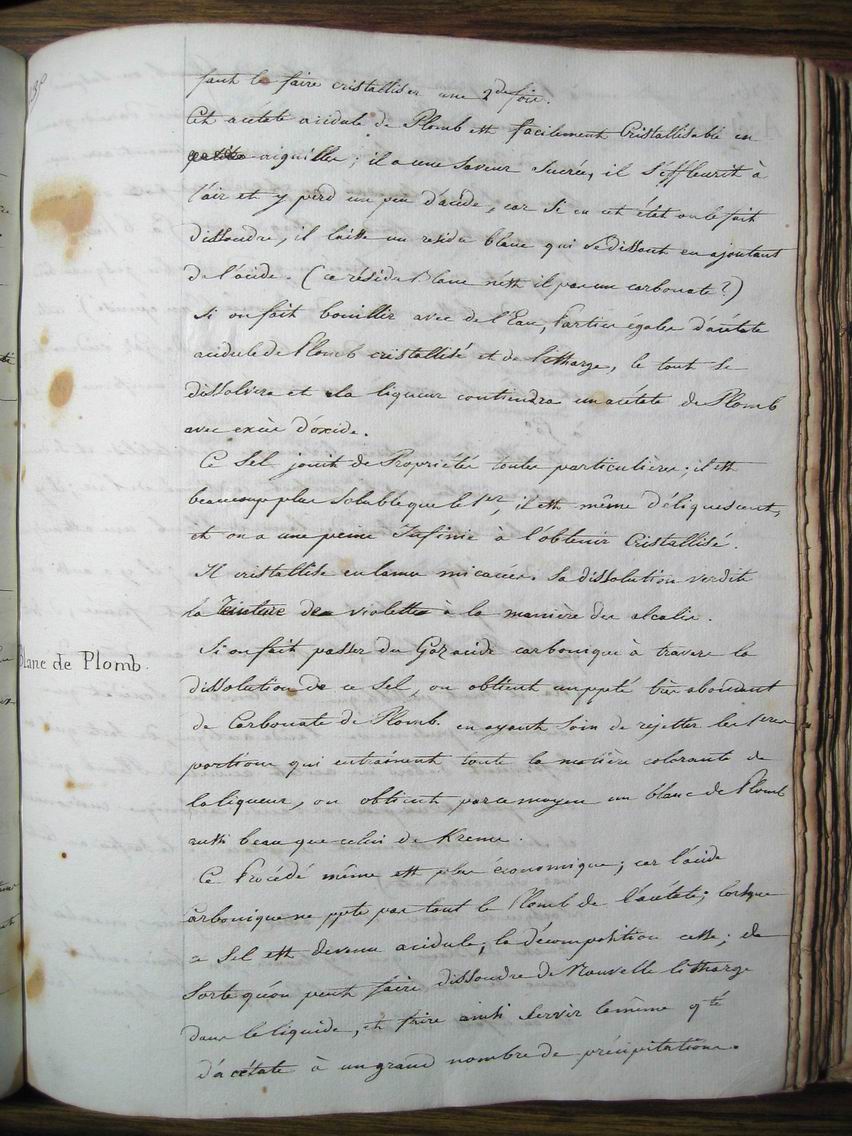 faut le faire cristalliser une 2de fois.
Cet acétate acidule de Plomb est facilement Cristallisable en
petites aiguilles; il a une Saveur Sucrée, il S'effleurit à
l'air et y perd un peu d'acide, car si en cet état on le fait
dissoudre, il laisse un residu blanc qui se dissout en ajoutant
de l'acide. (ce résidu Blanc n'est il pas un carbonate?)
Si on fait bouillir avec de l'Eau, Parties égales d'acétate
acidule de Plomb cristallisé et de litharge, le tout se
dissolvera et la liqueur contiendra un acétate de Plomb
avec excès d'oxide.
Ce Sel jouit de Propriétés toutes particulières; il est
beaucoup plus Soluble que le 1er, il est même déliquescent,
et on a une peine Infinie à l'obtenir Cristallisé.
Il cristallise en lames micacées. Sa dissolution verdit
la Teinture de violettes à la manière des alcalis.
Blanc de Plomb.
Si on fait passer du Gaz acide carbonique à travers la
dissolution de ce Sel, on obtient un ppté très abondant
de Carbonate de Plomb. en ayant Soin de rejetter les 1eres
portions qui entrainent toute la matière colorante de
la liqueur, on obtient par ce moyen un blanc de Plomb
aussi beau que celui de Krems.
Ce Procédé même est plus économique; car l'acide
carbonique ne ppte pas tout le Plomb de l'acétate; lorsque
ce Sel est devenu acidule, la décomposition cesse; de
Sorte qu'on peut faire dissoudre de Nouvelle litharge
dans le liquide, et faire ainsi Servir la même qté
d'acétate à un grand nombre de précipitations.